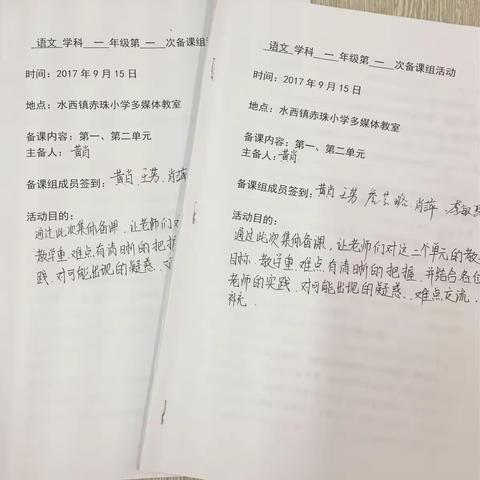 语文 学科 一 年级第 一 次备课组活
时间：2017年9月15日
地点：水西镇赤珠小学多媒体教室
备课内容：第一、第二单元
主备人：黄肖
备课组成员签到：黄肖 王芳 肖萍
活动目的：
通过此次集体备课，让老师们对
教学重、难点有清晰的把握
践，对可能出现的疑惑、
语文 学科 一 年级第 一 次备课组活动
时间：2017年9月15日
地点：水西镇赤珠小学多媒体教室
备课内容：第一、第二单元
主备人：黄肖
备课组成员签到：黄肖 王芳 肖萍、李敏
活动目的：
通过此次集体备课，让老师们对这二个单元的教
目标、教学重、难点有清晰的把握，并结合各位
老师的实践，对可能出现的疑惑、难点交流，
补充．